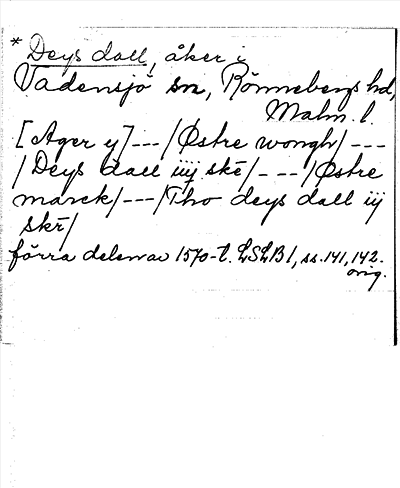 * Deys dall, åker i
Vadensjö sn, Rönnebergs hd,
Malm. l.
[Ager y] --- / Østre wongh / ---
/ Deys dall iiij skē / --- / Østre
marck / --- / Tho deys dall iij
skē /
förra delen av 1570-t. LSLB1, ss. 141, 142.
orig.